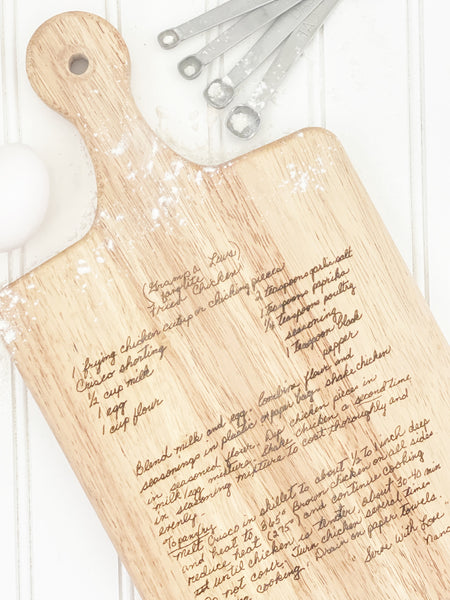 (Grandpa Lew's)
Favorite
Fried Chicken
1 frying chicken cutup or chicking pieces
Crisco shorting
1/2 cup milk
1 egg
1 cup flour
2 teaspoons
salt
1 teaspoons paprika
1/4 teaspoons poultry
seasoning
1 teaspoon black
pepper
Blend milk and egg. Combine flour and
seasonings in plastic or paper bag. shake chicken
in seasoned flour. Dip chicken pieces in
milk/egg mixture. Shake chicken a second time
in seasoning mixture to coat thoroughly and
evenly
To panfry
Melt Crisco in skillet to about 1/2 to 1 inch deep
and heat to 365° Brown chicken on all side
reduce heat (275°) and continue cooking
until chicken is tender, about 30-40 min
Do not cover. Turn chicken several time
cooking. Drain on paper towels.
"Serve with Love
Nana